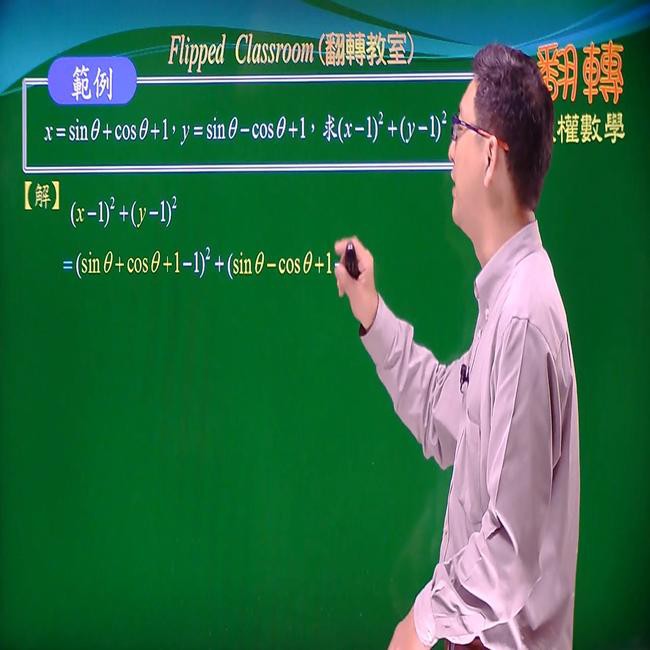 Flipped Classroom (翻轉教室)
翻轉
權數學
範例
x=sinθ+cosθ+1，y=sinθ−cosθ+1，求(x−1)²+(y−1)²
【解】
(x−1)²+(y−1)²
=(sinθ+cosθ+1−1)²+(sinθ−cosθ+1